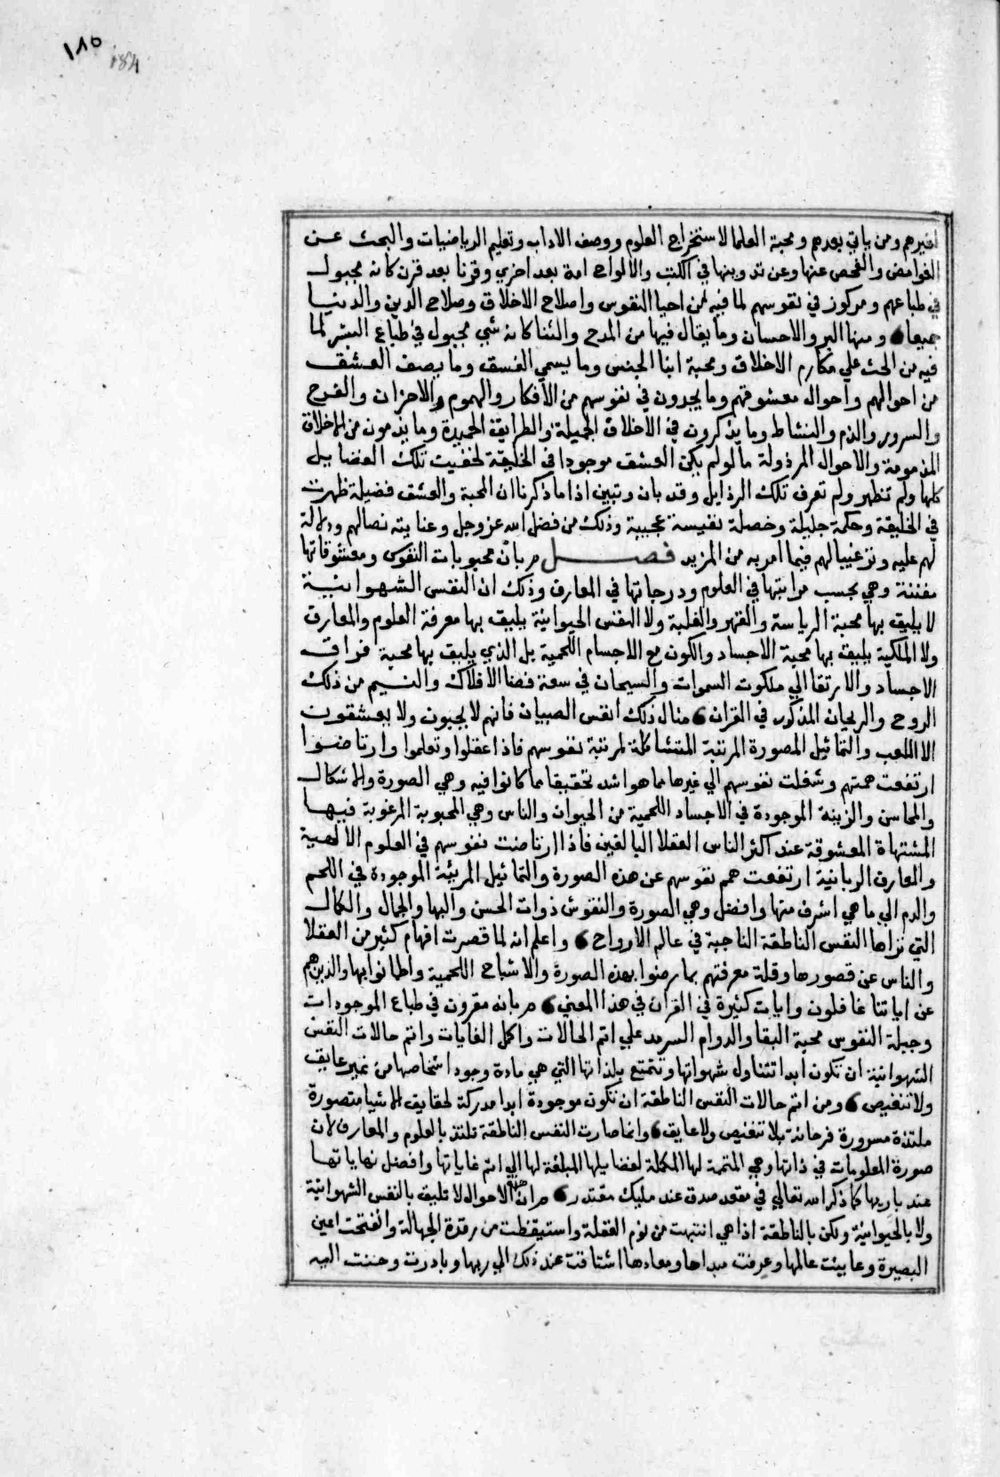 ١٨٥
184
لغيرهم ومن ياتي بعدهم ومحبة العلما لاستخراج العلوم ووصف الاداب وتعليم الرياضيات والبحث عن
الغوامض والفحص عنها وعن تدوينها في الكتب والالواح امة بعد اخري وقرنا بعد قرن كانه مجبول
في طباعهم ومركوز في نفوسهم لما فيه من احيا النفوس واصلاح الاخلاق وصلاح الدين والدنيا
جميعا ، ومنها البر والاحسان وما يقال فيها من المدح والثنا كانه شي مجبول في طباع البشر لما
فيه من الحث علي مكارم الاخلاق ومحبة ابنا الجنس وما يسمي الفسق وما يصف العشق
من احوالهم واحوال معشوقهم وما يجدون في نفوسهم من الافكار والهموم والاحزان والفرح
والسرور والذم والنشاط وما يذكرون في الاخلاق الجميلة والطرايق الحميدة وما يذمون من الاخلاق
المذمومة والاحوال المرذولة ما لو لم يكن العشق موجودا في الخليقة لخفيت تلك الفضايل
كلها ولم تظهر ولم تعرف تلك الرذايل وقد بان وتبين اذا ما ذكرنا ان المحبة والعشق فضيلة ظهرت
في الخليقة وحكمة جليلة وخصلة نفيسة عجيبة وذلك من فضل الله عز وجل وعنايته بمصالهم ودلالة
لهم عليه وترغيبا لهم فيما امر به من المزيد فصل من بان محبوبات النفوس ومعشوقاتها
مفننة وهي بحسب مراتبها في العلوم ودرجاتها في المعارف وذلك ان النفس الشهوانية
لا يليق بها محبة الرياسة والقهر والغلبة ولا النفس الحيوانية يليق بها معرفة العلوم والمعارف
ولا الملكية يليق بها محبة الاجساد والكون مع الاجسام اللحمية بل الذي يليق بها محبة فراق
الاجساد والارتقا الي ملكوت السموات والسيحان في سعة فضا الافلاك والنسيم من ذلك
الروح والريحان المذكور في القران ، مثال ذلك انفس الصبيان فانهم لا يحبون ولا يعشقون
الا اللعب والتماثيل المصورة المرتبة المتشاكلة لمرتبة نفوسهم فاذا عقلوا وتعلموا وارتاضوا
ارتفعت همتهم وشغلت نفوسهم الي غيرها مما هو اشد تحقيقا مما كانوا فيه وهي الصورة والاشكال
والمحاسن والزينة الموجودة في الاجساد اللحمية من الحيوان والناس وهي المحبوبة المرغوبة فيها
المشتهاة المعشوقة عند اكثر الناس العقلا البالغين فاذا ارتاضت نفوسهم في العلوم الالهية
والمعارف الربانية ارتفعت همم نفوسهم عن هذه الصورة والتماثيل المرئية الموجودة في اللحم
والدم الي ما هي اشرف منها وافضل وهي الصورة والنقوش ذوات الحسن والبها والجمال والكمال
التي تراها النفس الناطقة الناجية في عالم الارواح ، واعلم انه لما قصرت افهام كثير من العقلا
والناس عن قصورها وقلة معرفتهم بما رضوا بهذه الصورة والاشباح اللحمية واطمانوا بها والذين هم
عن اياتنا غافلون وايات كثيرة في القران في هذا المعني ، من بانه مقرون في طباع الموجودات
وجبلة النفوس محبة البقا والدوام السرمد علي اتم الحالات واكمل الغايات واتم حالات النفس
الشهوانية ان تكون ابدا تتناول شهواتها وتتمتع بلذاتها التي هي مادة وجود اشخاصها من غير عايق
ولا تنغيص ، ومن اتم حالات النفس الناطقة ان تكون موجودة ابدا مدركة لحقايق الاشيا متصورة
ملتذة مسرورة فرحانة بلا تنغيص ولا عايق ، وانما صارت النفس الناطقة تلتذ بالعلوم والمعارف لان
صورة المعلومات في ذاتها وهي المتممة لها المكملة لفضايلها المبلغة لها الي اتم غاياتها وافضل نهاياتها
عند باريها كما ذكر الله تعالي في مقعد صدق عند مليك مقتدر ، من ان هذه الاحوال لا تليق بالنفس الشهوانية
ولا بالحيوانية ولكن بالناطقة اذا هي انتبهت من نوم الغفلة واستيقظت من رقدة الجهالة وانفتحت اعين
البصيرة وعاينت عالمها وعرفت مبداها ومعادها اشتاقت عند ذلك الي ربها وبادرت وحنت اليه